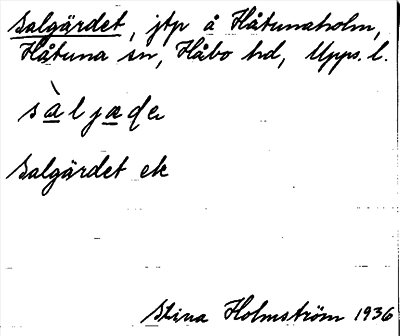 Salgärdet, jtp å Håtunaholm,
Håtuna sn, Håbo hd, Upps. l.
sàljade
Salgärdet ek
Stina Holmström 1936